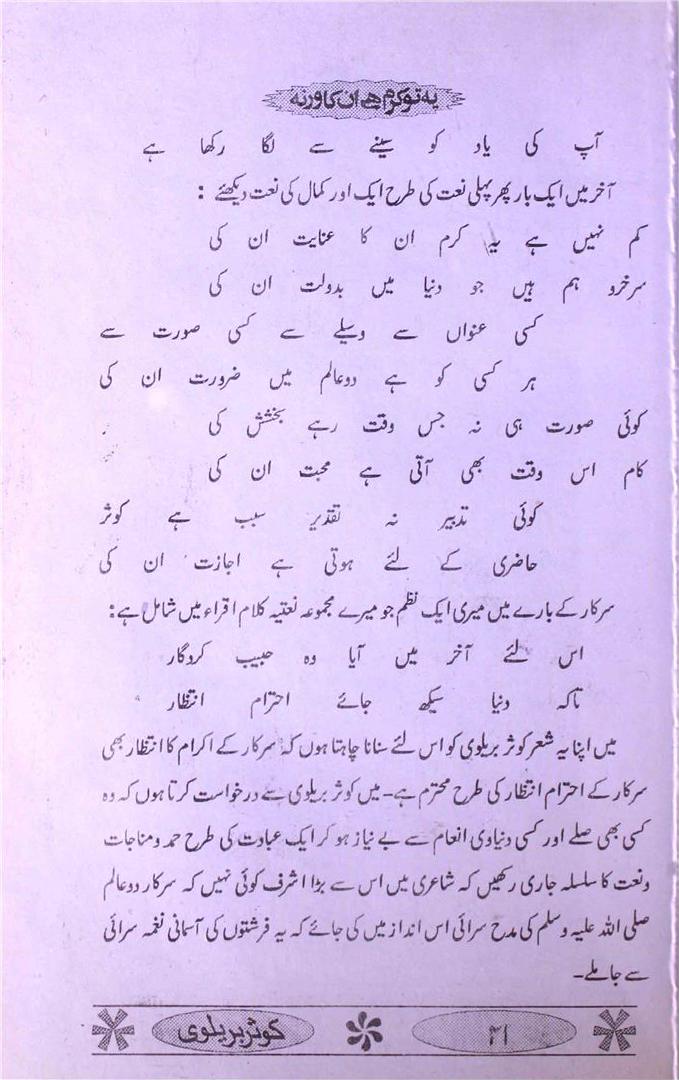 یہ تو کرم ھے ان کا ورنہ
آپ کی یاد کو سینے سے لگا رکھا ہے
آخر میں ایک بار پھر پہلی نعت کی طرح ایک اور کمال کی نعت دیکھئے :
کم نہیں ہے یہ کرم ان کا عنایت ان کی
سرخرو ہم ہیں جو دنیا میں بدولت ان کی
کسی عنواں سے وسیلے سے کسی صورت سے
ہر کسی کو ہے دوعالم میں ضرورت ان کی
کوئی صورت ہی نہ جس وقت رہے بخشش کی
کام اس وقت بھی آتی ہے محبت ان کی
کوئی تدبیر نہ تقدیر سبب ہے کوثر
حاضری کے لئے ہوتی ہے اجازت ان کی
سرکار کے بارے میں میری ایک نظم جو میرے مجموعہ نعتیہ کلام اقراء میں شامل ہے :
اس لئے آخر میں آیا وہ حبیب کردگار
تاکہ دنیا سیکھ جائے احترام انتظار
میں اپنا یہ شعر کوثر بریلوی کو اس لئے سنانا چاہتا ہوں کہ سرکار کے اکرام کا انتظار بھی
سرکار کے احترام انتظار کی طرح محترم ہے۔ میں کوثر بریلوی سے درخواست کرتا ہوں کہ وہ
کسی بھی صلے اور کسی دنیاوی انعام سے بے نیاز ہو کر ایک عبادت کی طرح حمد و مناجات
و نعت کا سلسلہ جاری رکھیں کہ شاعری میں اس سے بڑا اشرف کوئی نہیں کہ سرکار دوعالم
صلی اللہ علیہ وسلم کی مدح سرائی اس انداز میں کی جائے کہ یہ فرشتوں کی آسمانی نغمہ سرائی
سے جاملے۔
۳۱ کوثر بریلوی